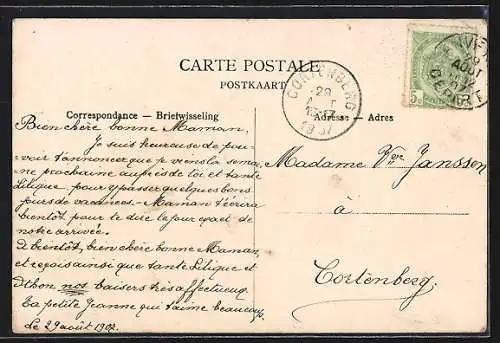 CARTE POSTALE
POSTKAART
Correspondance — Briefwisseling
Adresse — Adres
Bien chère bonne Maman,
Je suis heureuse de pou-
voir t'annoncer que je viens la semai
ne prochaine auprès de toi et tante
Lilique pour y passer quelques bons
jours de vacances. Maman t'écrira
bientôt pour te dire le jour exact de
notre arrivée.
A bientôt, bien chère bonne Maman,
et reçois ainsi que tante Lilique et
nos baisers très affectueux
Ta petite Jeanne qui t'aime beaucoup.
Le 29 août 1907.
Madame Vve Janssen
à
Cortenberg.
CORTENBERG
29
1907
AOUT
5c